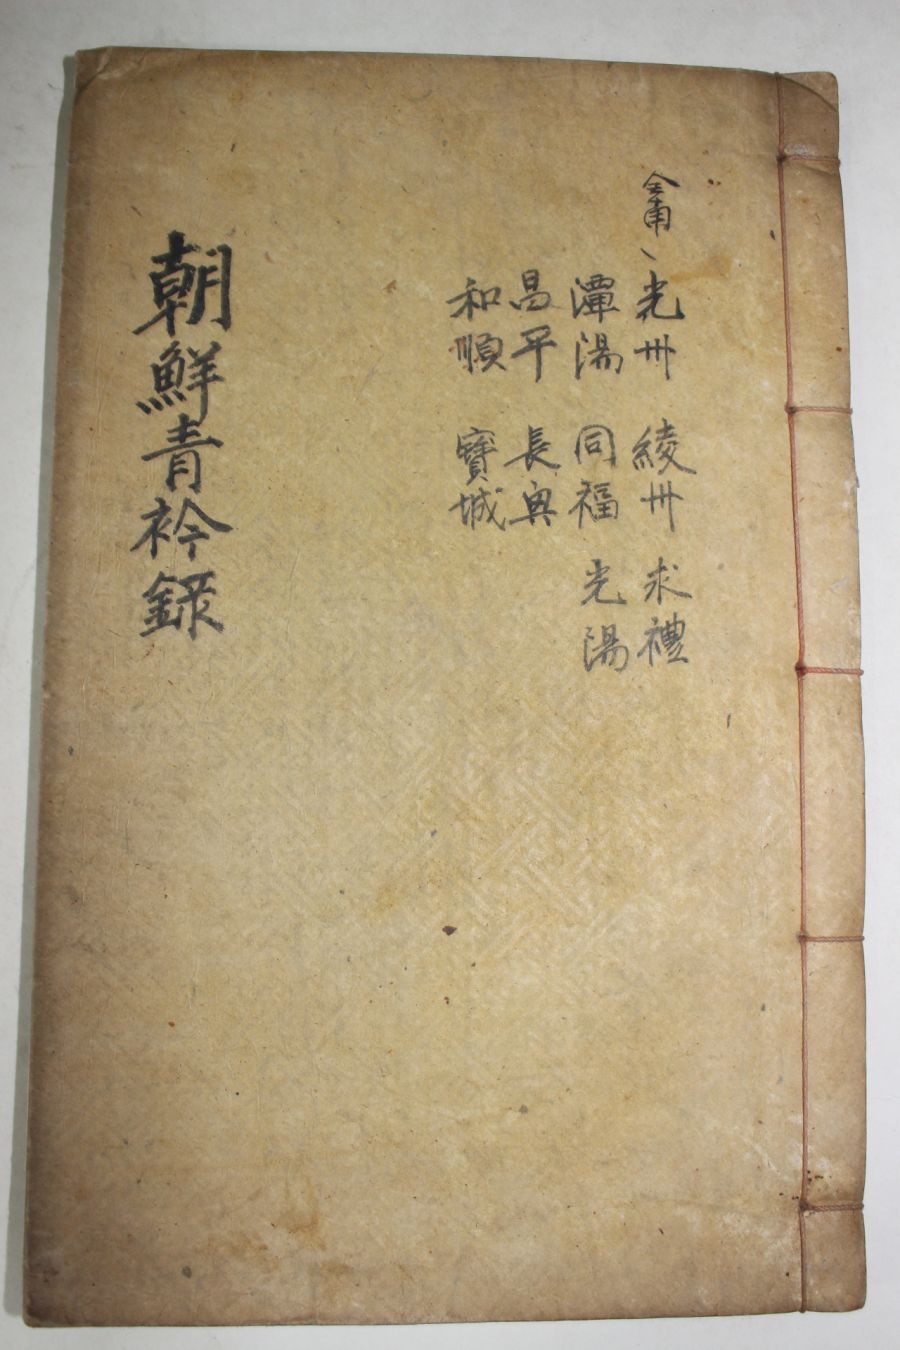 全南、光州 綾州 求禮
潭陽 同福 光陽
昌平 長興
和順 寶城
朝鮮青衿錄